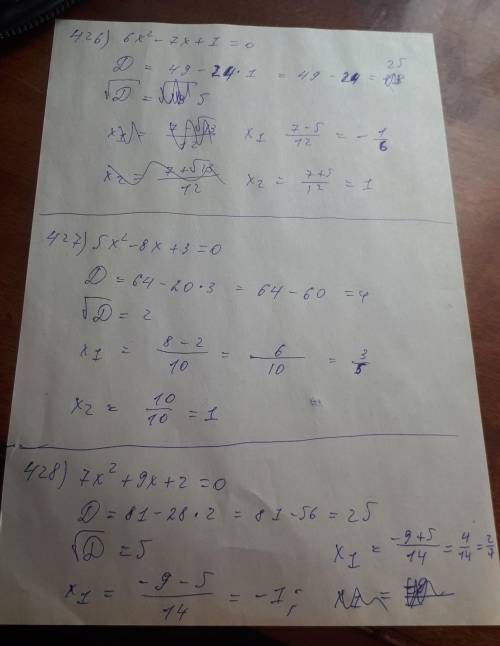 426) 6x² - 7x + 1 = 0
D = 49 - 24 · 1 = 49 - 24 = 25
√D = 5
x1 7-5/12 = - 1/6
x2 = 7+√13/12 x2 = 7+5/12 = 1
427) 5x² - 8x + 3 = 0
D = 64 - 20 · 3 = 64 - 60 = 4
√D = 2
x1 = 8-2/10 = 6/10 = 3/5
x2 = 10/10 = 1
428) 7x² + 9x + 2 = 0
D = 81 - 28 · 2 = 81 - 56 = 25
√D = 5 x1 = -9+5/14 = 4/14 = 2/7
x1 = -9-5/14 = -1;